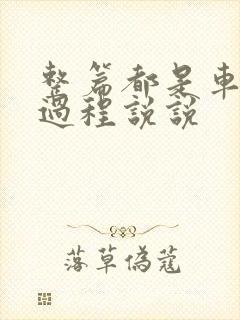 整篇都是車
過程說說
落草偽蔻